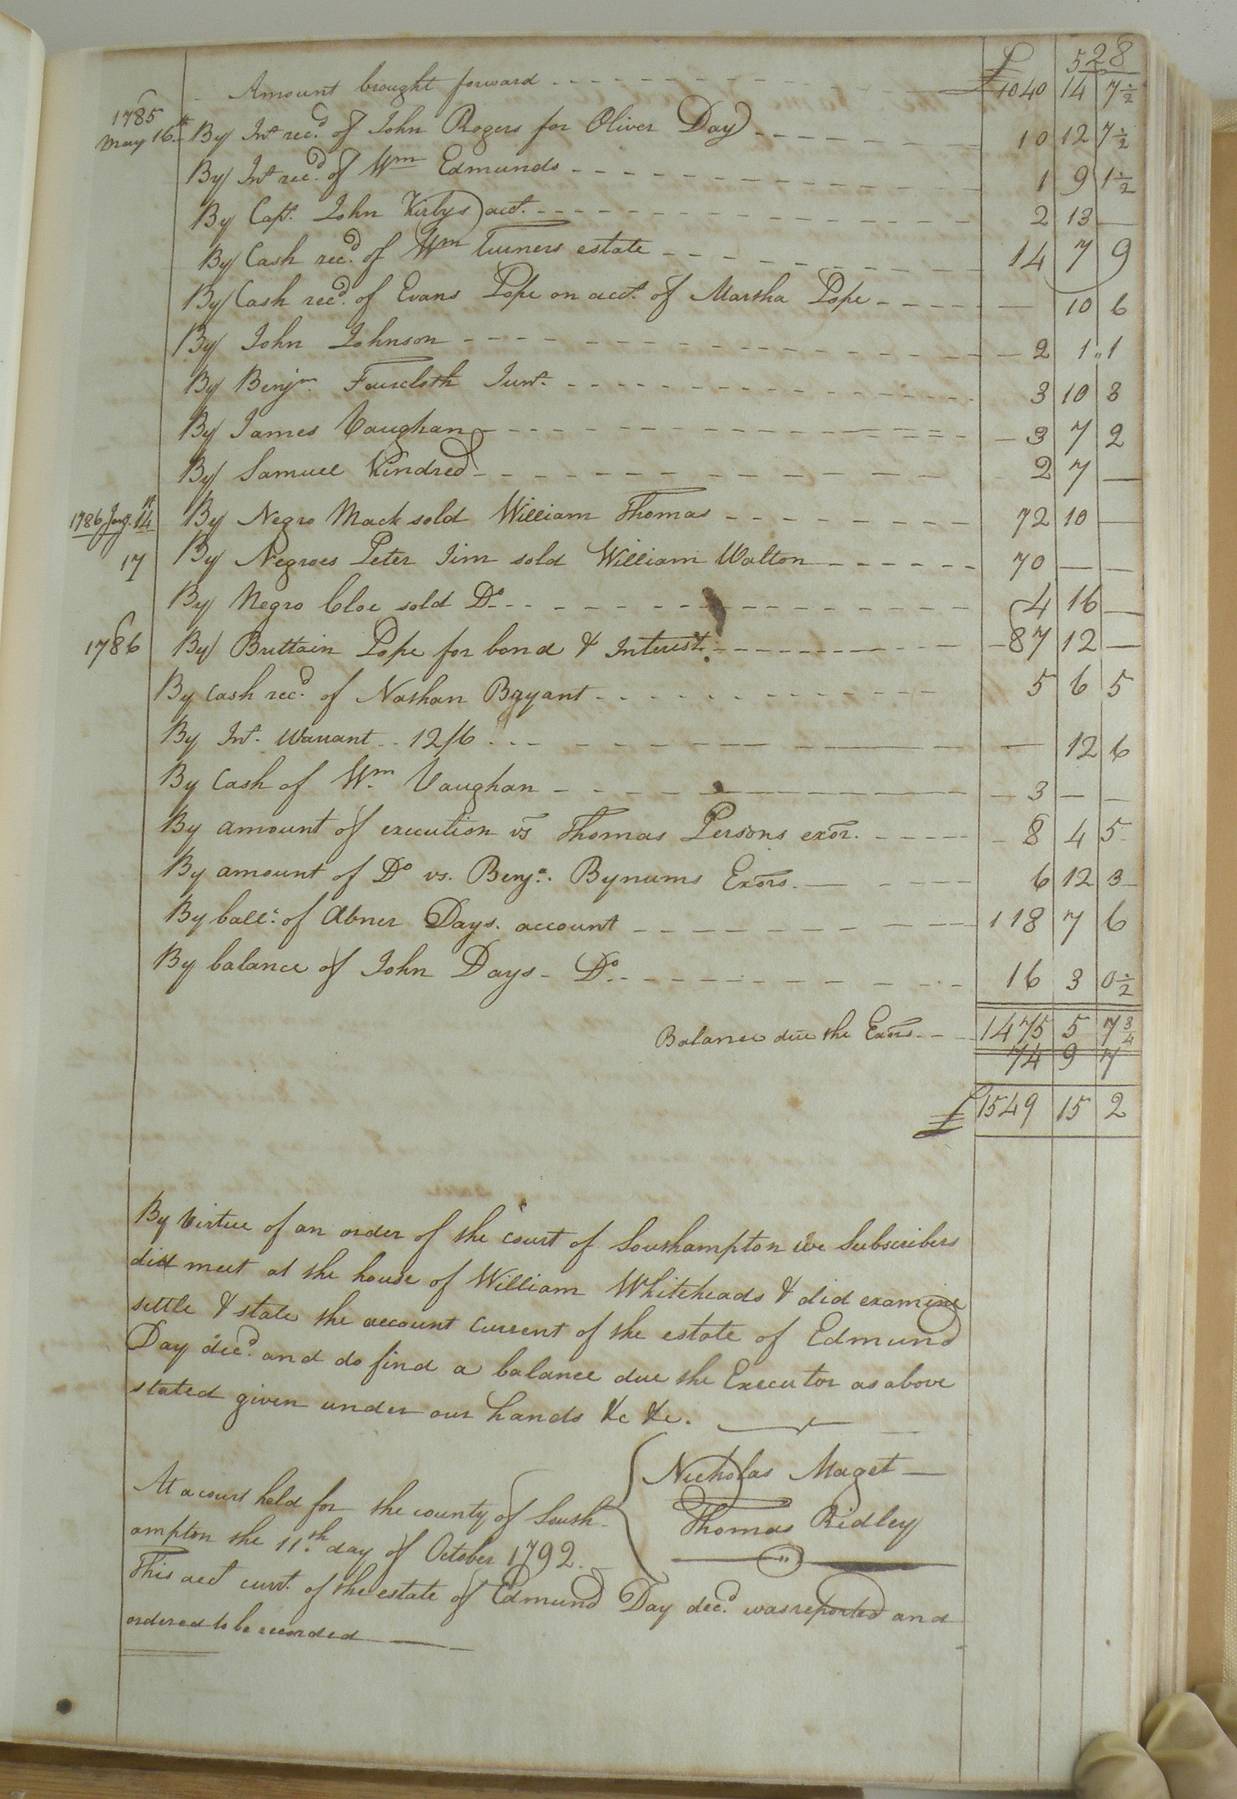 528
Amount brought forward - - - £ 1040 14 7½
1785
May 16th By Int. recd. of John Rogers for Oliver Day - - - 10 12 7½
By Int. recd. of Wm Edmunds - - - 1 9 1½
By Capt. John Kirbys acct. - - - 2 13 —
By Cash recd. of Wm Turners estate - - - 14 7 9
By Cash recd. of Evans Pope on acct. of Martha Pope - - - — 10 6
By John Johnson - - - 2 1 „ 1
By Benjn. Faircloth Junr. - - - 3 10 8
By James Vaughan - - - 3 7 2
By Samuel Kindred - - - 2 7 —
1786 Jany. 14th By Negro Mack sold William Thomas - - - 72 10 —
17 By Negroes Peter Jim sold William Walton - - - 70 — —
By Negro Cloe sold Do. - - - 4 16 —
1786 By Brittain Pope for bond & Interest - - - 87 12 —
By Cash recd. of Nathan Bryant - - - 5 6 5
By Int. Warrant - - 12/6 - - - — 12 6
By Cash of Wm. Vaughan - - - 3 — —
By amount of execution vs Thomas Persons exor. - - - 8 4 5
By amount of Do vs. Benja. Bynums Exors. - - - 6 12 3
By balle. of Abner Days. account - - - 118 7 6
By balance of John Days - Do. - - - 16 3 0½
1475 5 7¾
Balance due the Exors - - - 74 9 7
£ 1549 15 2
By Virtue of an order of the court of Southampton we Subscribers
did meet at the house of William Whiteheads & did examine
settle & state the account Current of the estate of Edmund
Day decd. and do find a balance due the Executor as above
stated given under our hands &c &c.
Nicholas Maget
Thomas Ridley
At a court held for the county of South-
ampton the 11th. day of October 1792.
This acct curt. of the estate of Edmund Day decd. was reported and
ordered to be recorded